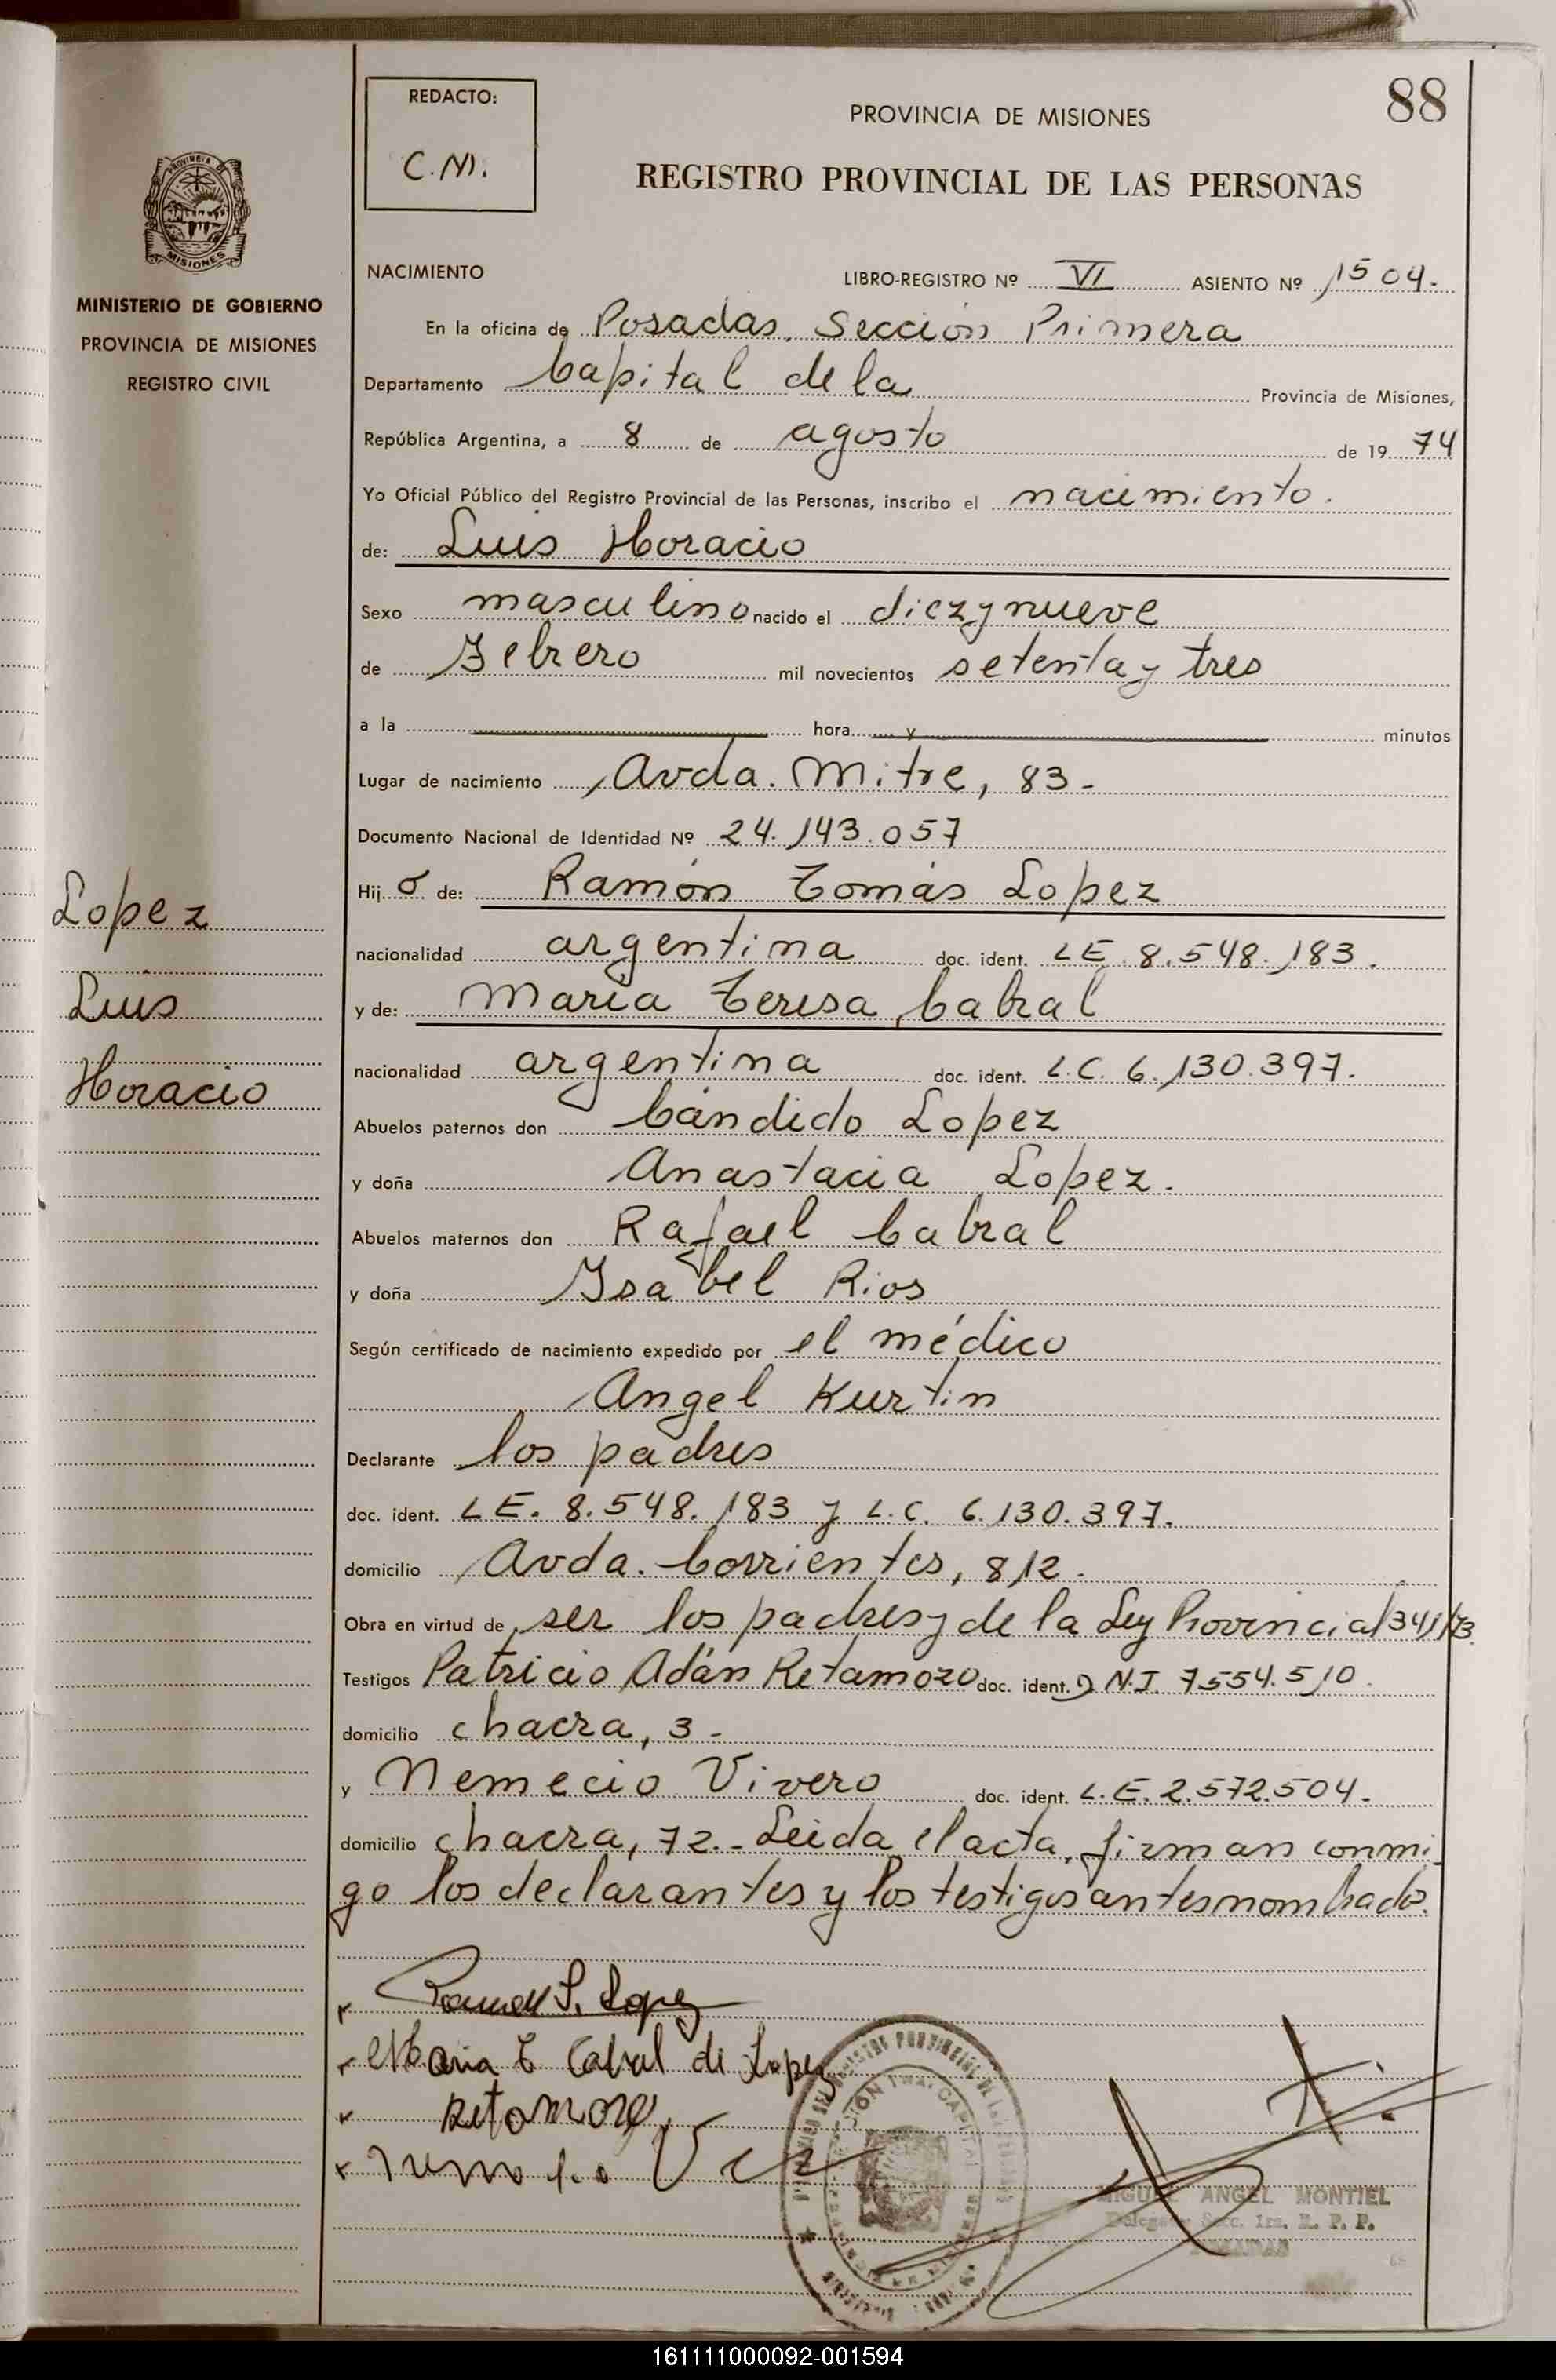 88
REDACTO:
C.M.
PROVINCIA DE MISIONES
REGISTRO PROVINCIAL DE LAS PERSONAS
MISIONES
MINISTERIO DE GOBIERNO
PROVINCIA DE MISIONES
REGISTRO CIVIL
NACIMIENTO
LIBRO-REGISTRO Nº VI ASIENTO Nº 1504.
En la oficina de Posadas, Sección Primera
Departamento Capital de la Provincia de Misiones,
República Argentina, a 8 de agosto de 19 74
Yo Oficial Público del Registro Provincial de las Personas, inscribo el nacimiento.
de: Luis Horacio
Sexo masculino nacido el diez y nueve
de Febrero mil novecientos setenta y tres
a la hora y minutos
Lugar de nacimiento Avda. Mitre, 83-
Documento Nacional de Identidad Nº 24.143.057
Hijo de: Ramón Tomás Lopez
nacionalidad argentina doc. ident. LE. 8.548.183.
y de: Maria Teresa Cabral
nacionalidad argentina doc. ident. L.C. 6.130.397.
Abuelos paternos don Cándido Lopez
y doña Anastacia Lopez.
Abuelos maternos don Rafael Cabral
y doña Isabel Rios
Según certificado de nacimiento expedido por el médico
Angel Kurtin
Declarante los padres
doc. ident. LE. 8.548.183 y L.C. 6.130.397.
domicilio Avda. Corrientes, 812.
Obra en virtud de ser los padres y de la Ley Provincial 341/73.
Testigos Patricio Adán Retamozo doc. ident. D.N.I. 7554.510.
domicilio chacra, 3-
y Nemecio Vivero doc. ident. L.E. 2.572.504.
domicilio chacra, 72.- Leida el acta, firman conmi-
go los declarantes y los testigos antes nombrados.
Lopez
Luis
Horacio
Ramon T. Lopez
Maria T Cabral de Lopez
Retamozo
MIGUEL ANGEL MONTIEL
Secc. 1ra. R. P. P.
POSADAS
161111000092-001594